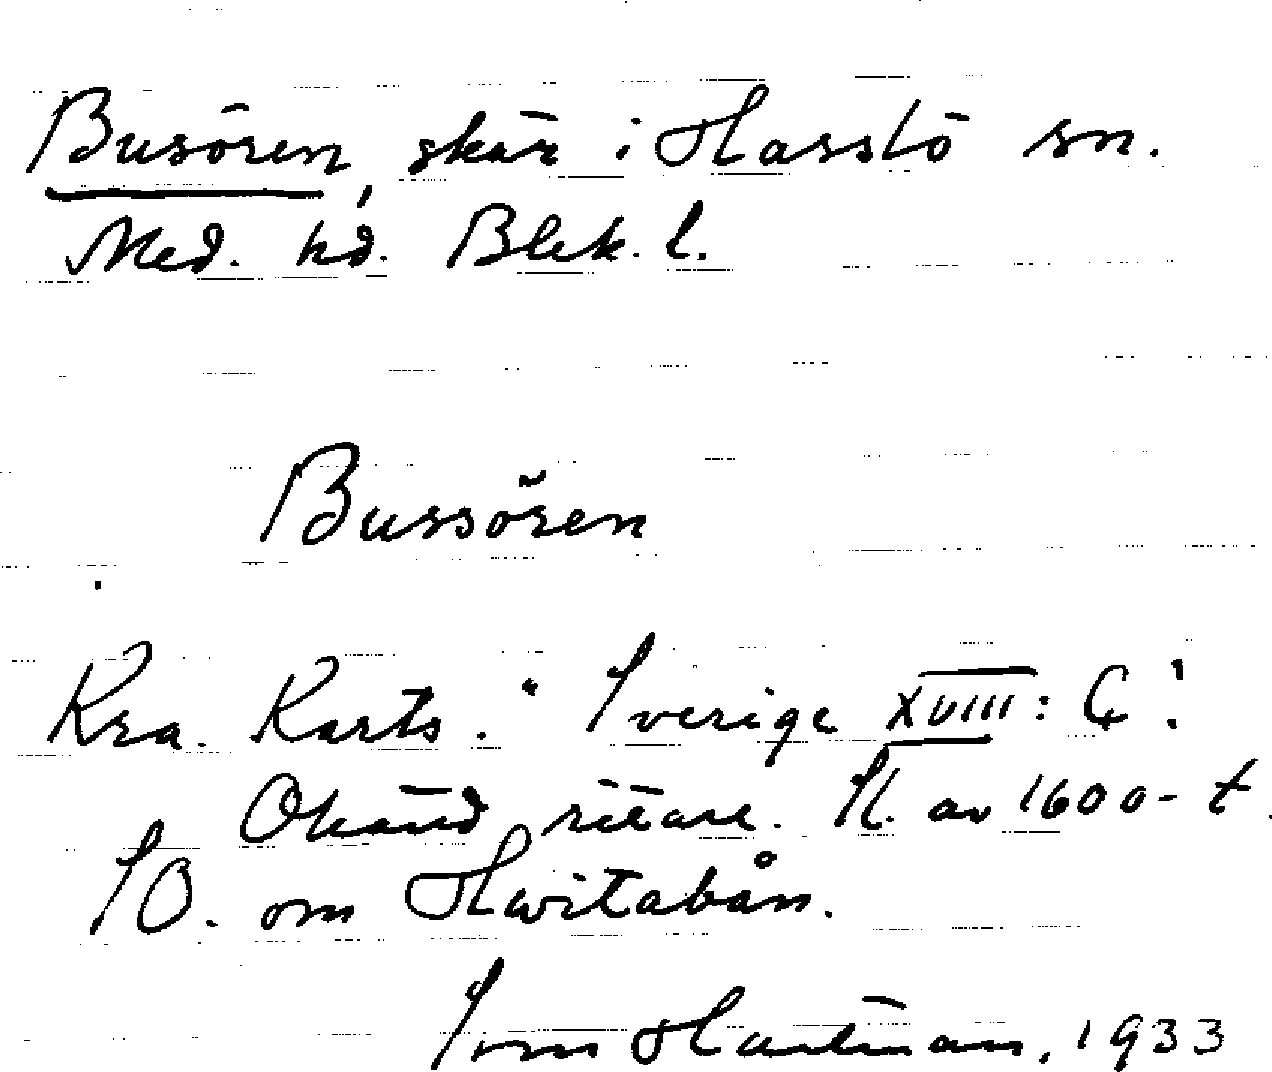 Busören, skär i Hasslö sn.
Med. hd. Blek. l.
Bussören
Kra. Karts. "Sverige XVIII: C".
Okänd ritare. Sl. av 1600-t.
SO. om Hwitabån.
Sven Hartman, 1933